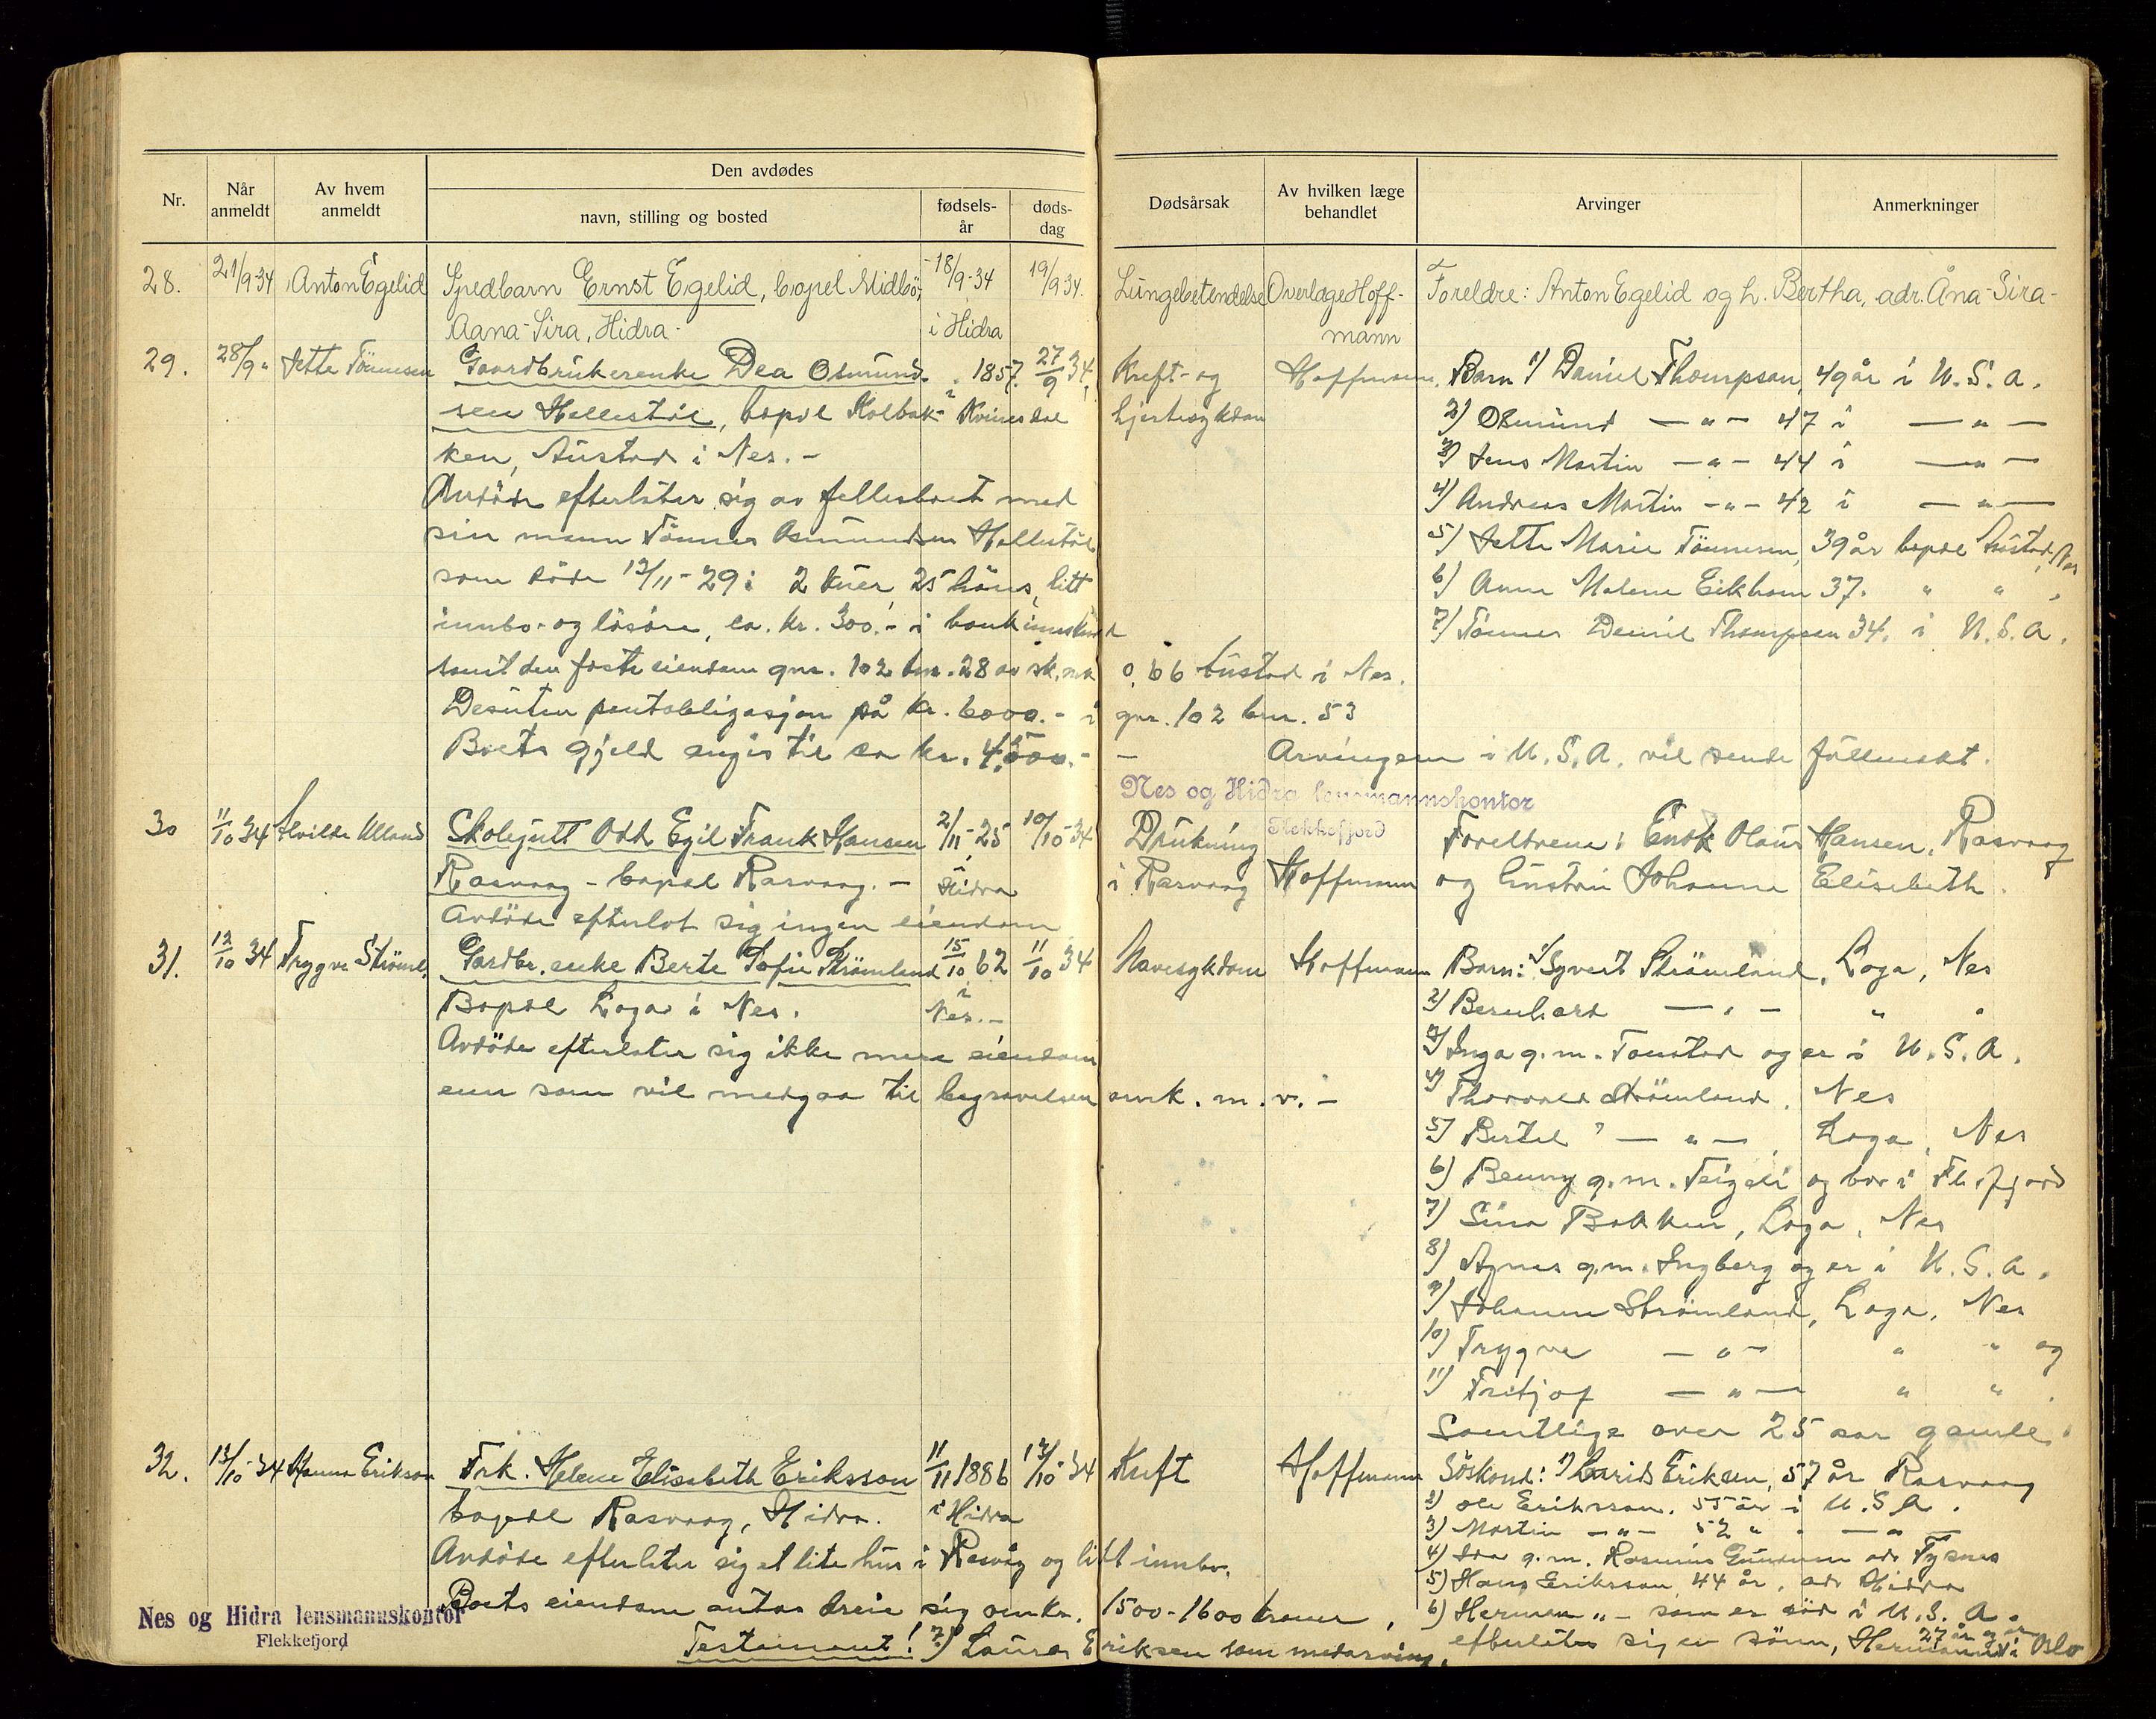 Nr.
Når anmeldt
Av hvem anmeldt
Den avdødes
navn, stilling og bosted
fødsels-år
døds-dag
Dødsårsak
Av hvilken læge behandlet
Arvinger
Anmerkninger
28. 21/9-34 Anton Egelid Spedbarn Ernst Egelid, bopel Midbö, 18/9-34 19/9 34. Lungebetendelse Overlæge Hoff- Foreldre: Anton Egelid og h. Bertha, adr. Åna-Sira-
Aana-Sira, Hidra- i Hidra mann
29. 28/9 " Jette Tönnesen Gaardbrukerenke Dea Osmund- 1857. 27/9 34. Kreft- og Hoffmann. Barn 1) Daniel Thompson, 49 år i U.S.A.
sen Hellestöl, bopel Kolbak- i Kvinesdal hjertesykdom 2) Osmund — " — 47 i — " —
ken, Austad i Nes. - 3) Jens Martin — " — 44 i — " —
Avdöde efterlater sig av fellesboet med 4) Andreas Martin - " - 42 i — " —
sin mann Tönnes Osmundsen Hellestöl 5) Jette Marie Tönnesen, 39 år bopel Austad, Nes
som döde 13/11-29: 2 kuer, 25 höns, litt 6) Anne Malene Eikhom 37. " "
innbo- og lösöre, ca. kr. 300.- i bankinnskud 7) Tönnes Daniel Thompson 34. i U.S.A.
samt den faste eiendom gnr. 102 bnr. 28 av sk. mk 0,66 Austad i Nes.
Desuten pantobligasjon på kr. 6000.- i gnr. 102 bnr. 53
Boets gjeld angis til ca kr. 4,500.- — Arvingene i U.S.A. vil sende fullmakt.
Nes og Hidra lensmannskontor
Flekkefjord
30 11/10 34 Alvilde Ulland Skolegutt Odd Egil Frank Hansen 2/11-25 10/10-34 Drukning Foreldrene: Enok Olaus Hansen, Rasvaag
Rasvaag - bopel Rasvaag. - i Hidra i Rasvaag Hoffmann og hustru Johanne Elisebeth.
Avdöde efterlot sig ingen eiendom
31. 12/10 34 Trygve Ströml. Gardbr. enke Berte Tofie Strömland 15/10 62 11/10 34 Navesykdom Hoffmann Barn: 1) Syvert Strömland, Loga, Nes
Bopel Loga i Nes. i Nes. - 2) Bernhard — " — " "
Avdöde efterlater sig ikke mere eiendom 3) Inga g.m. Tonstad og er i U.S.A.
enn som vil medgaa til begravelsen omk. m. v. - 4) Thorvald Strömland. Nes
5) Bertel — " —, Loga, Nes
6) Benny g.m. Feigeli og bor i Fl.fjord
7) Sina Bakken, Loga, Nes
8) Agnes g.m. Ingberg og er i U.S.A.
9) Johanne Strömland, Loga, Nes
10) Trygve — " — " " og
11) Fritjof — " — " "
Samtlige over 25 aar gamle.
32. 13/10-34 Hanna Erikson Frk. Helene Elisabeth Eriksson 11/11 1886 12/10-34 Kreft Hoffmann Söskend: 1) Lauritz Eriksen, 57 år Rasvaag
bopel Rasvaag, Hidra. i Hidra 2) Ole Eriksson. 55 år i U.S.A.
3) Martin — " — 52 " — " —
Avdöde efterlater sig et lite hus i Rasvåg og litt innbo. 4) Ida g.m. Rasmus Gundersen adr Tysnes
5) Hans Eriksson, 44 år, adr Hidra
Boets eiendom antas dreie sig om kr. 1500-1600 kroner, 6) Herman " - som er död i U.S.A.
Testament! 7) Laura Eriksen som medarving. efterlater sig en sönn, Hermann 27 år og er i Oslo
Nes og Hidra lensmannskontor
Flekkefjord